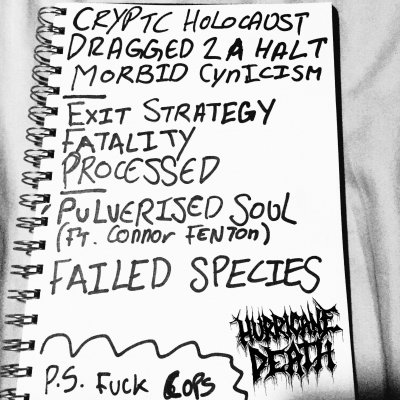 CRYPTC HOLOCAUST
DRAGGED 2 A HALT
MORBID CYNICISM
EXIT STRATEGY
FATALITY
PROCESSED
PULVERISED SOUL
(FT. CONNOR FENTON)
FAILED SPECIES
HURRICANE
DEATH
P.S. FUCK COPS